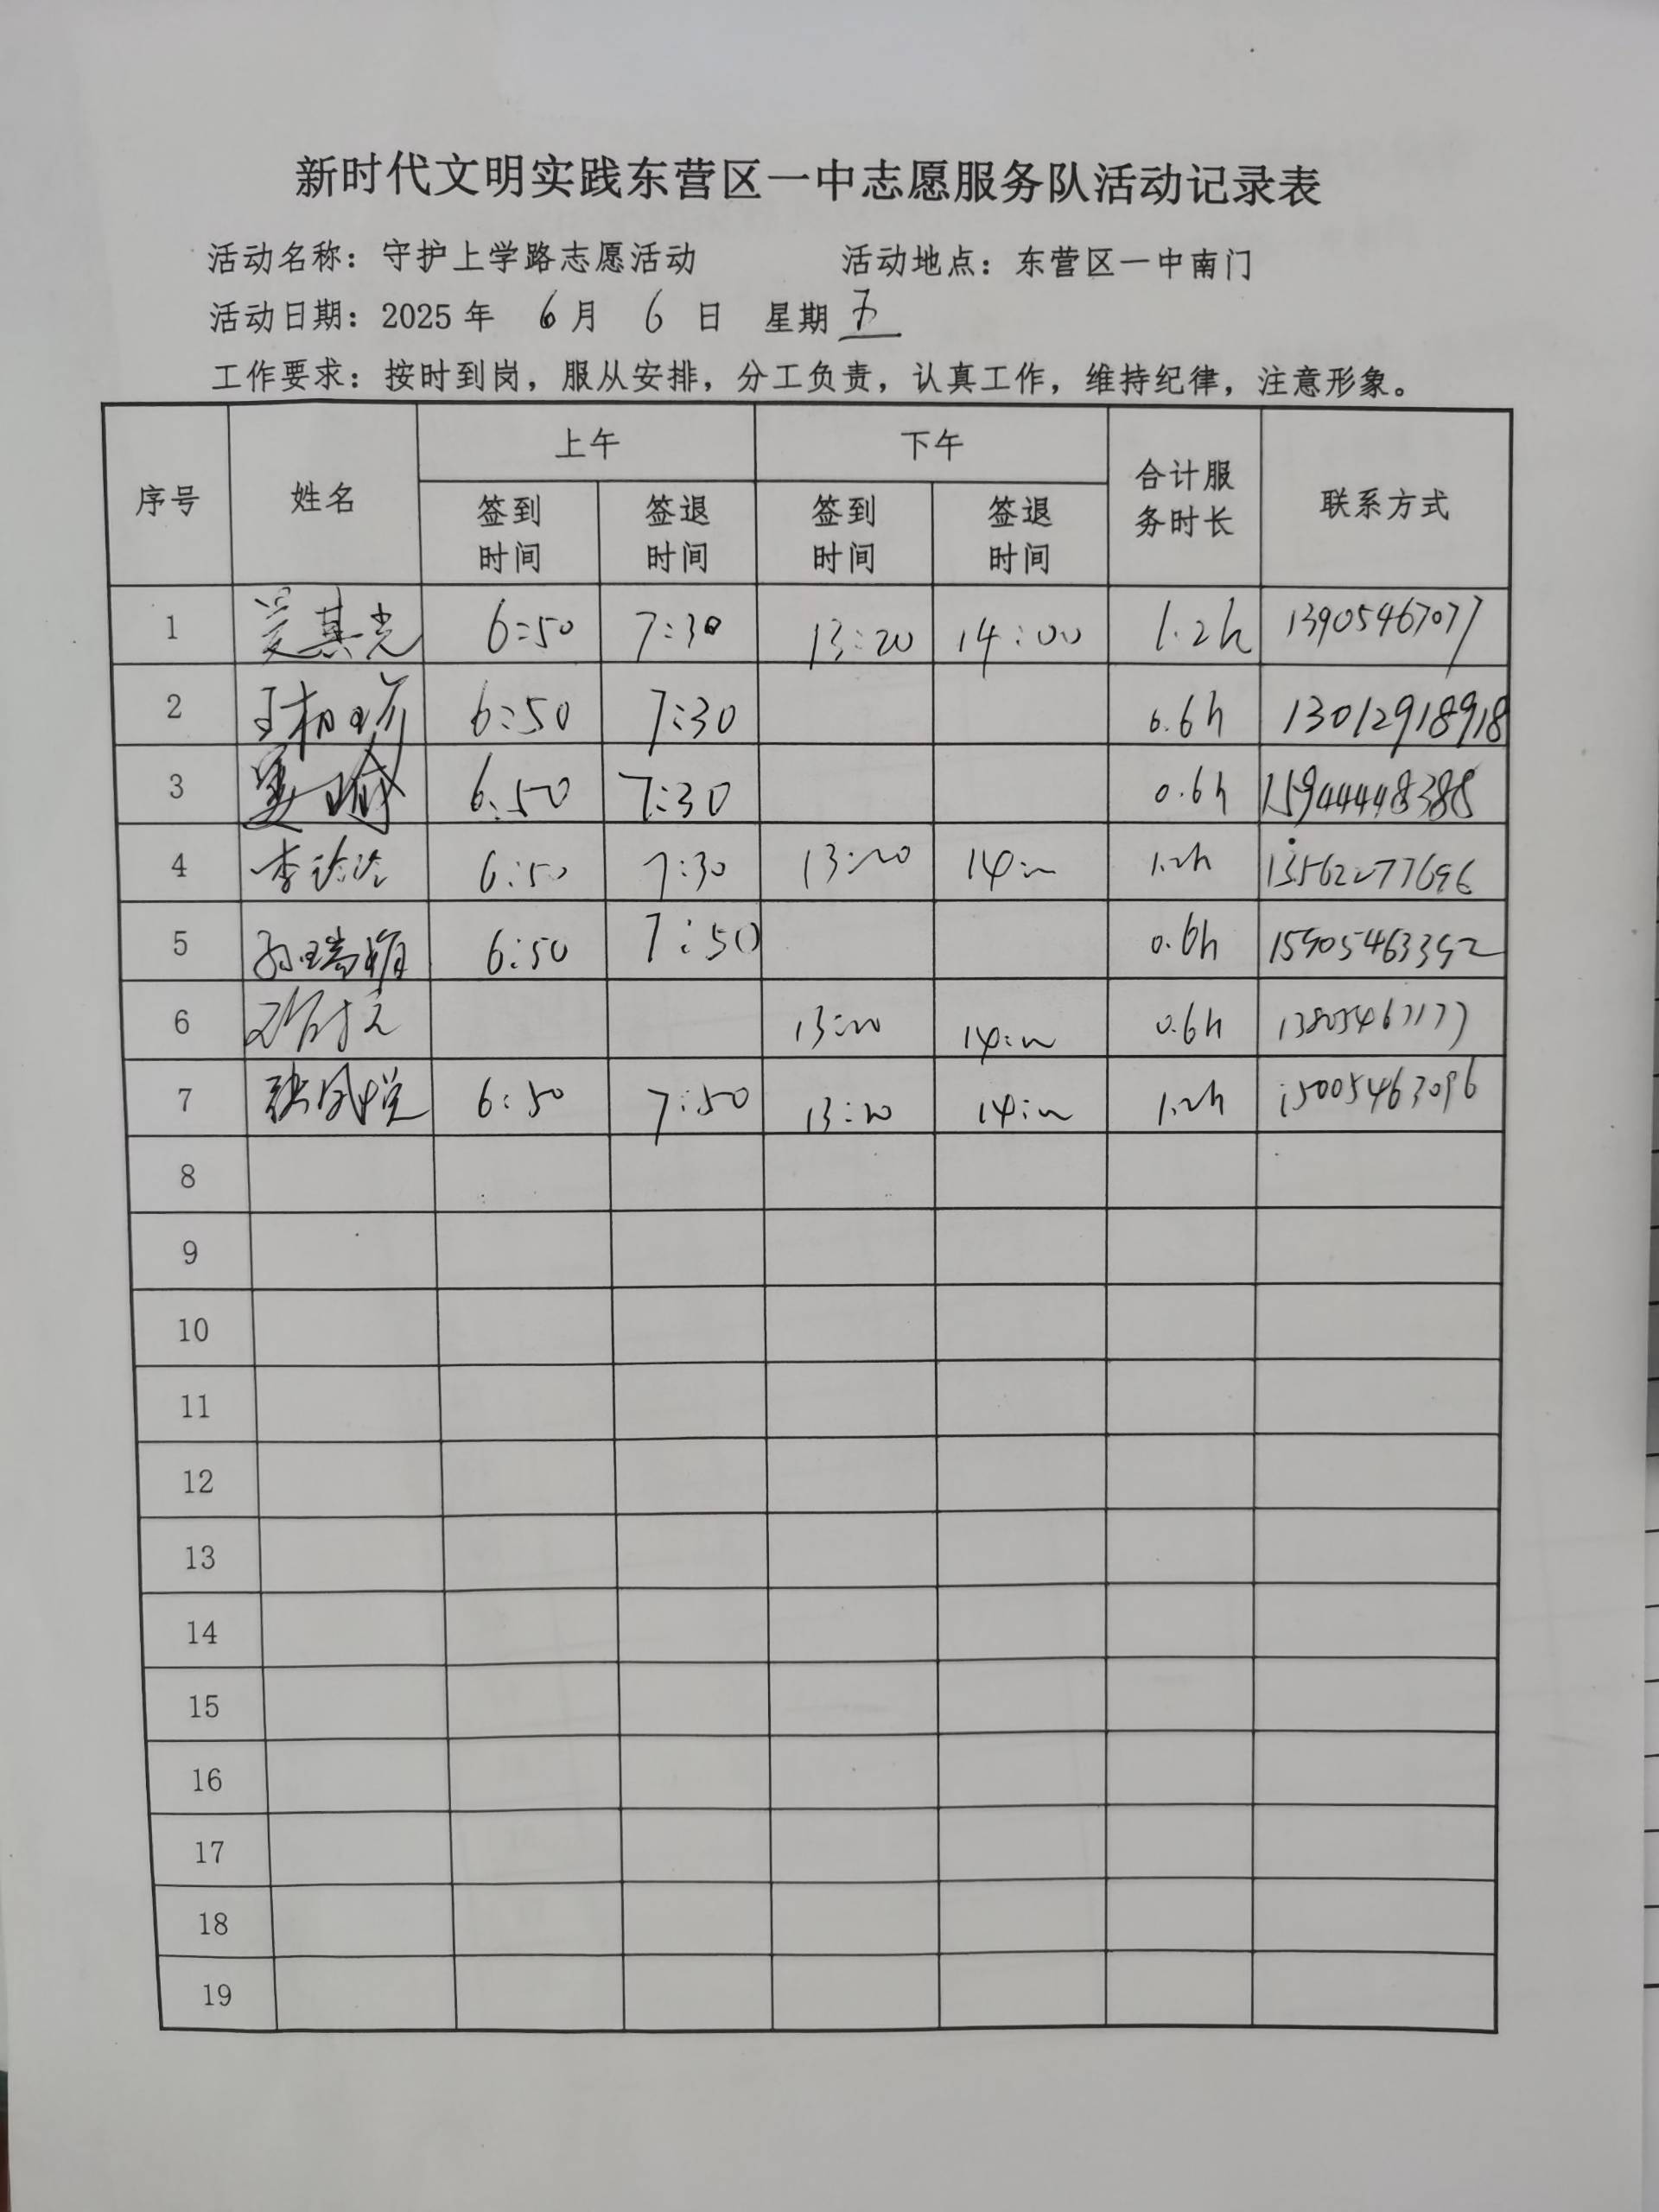 新时代文明实践东营区一中志愿服务队活动记录表
活动名称：守护上学路志愿活动 活动地点：东营区一中南门
活动日期：2025年 6月 6日 星期五
工作要求：按时到岗，服从安排，分工负责，认真工作，维持纪律，注意形象。
序号 姓名 上午 下午 合计服务时长 联系方式
签到时间 签退时间 签到时间 签退时间
1 吴其光 6:50 7:30 13:20 14:00 1.2h 13905467077
2 6:50 7:30 0.6h 13012918918
3 6:50 7:30 0.6h 15944448388
4 6:50 7:30 13:20 14:00 1.2h 13562277696
5 孙瑞娟 6:50 7:50 0.6h 15905463392
6 13:20 14:00 0.6h
7 张凤悦 6:50 7:50 13:20 14:00 1.2h 15005463096
8
9
10
11
12
13
14
15
16
17
18
19